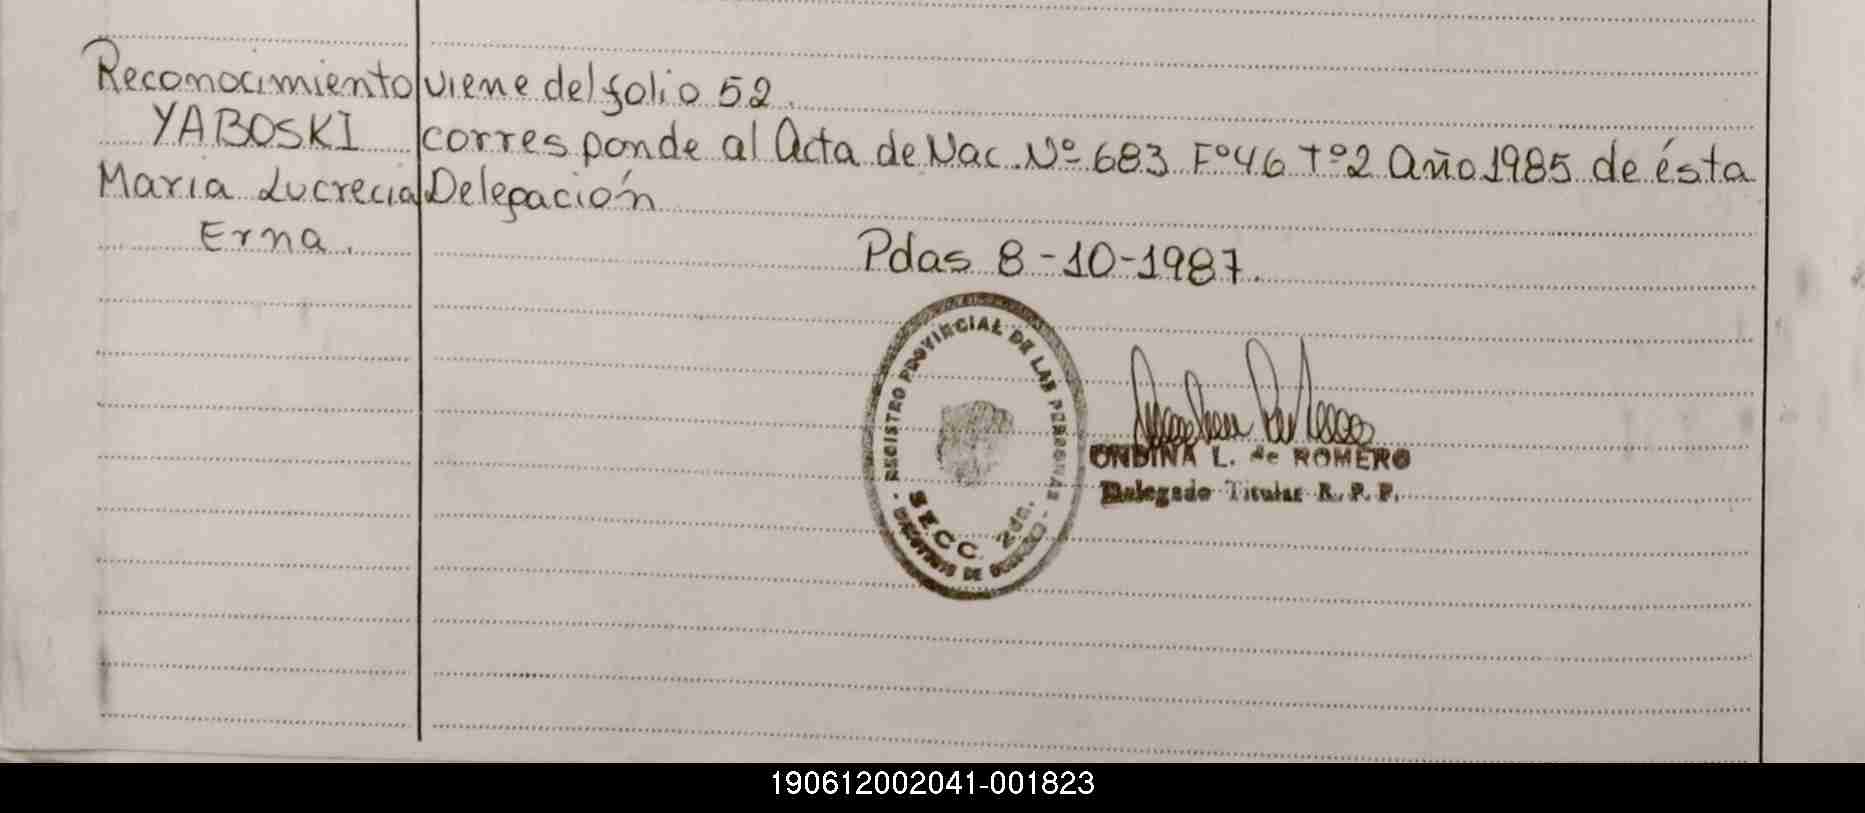 Reconocimiento viene del folio 52.
YABOSKI corresponde al Acta de Nac. Nº 683 Fº46 Tº2 Año 1985 de ésta
Maria Lucrecia Delegación
Erna.
Pdas 8-10-1987.
REGISTRO PROVINCIAL DE LAS PERSONAS
SECC. 2da.
ONDINA L. de ROMERO
Delegado Titular R. P. P.
190612002041-001823